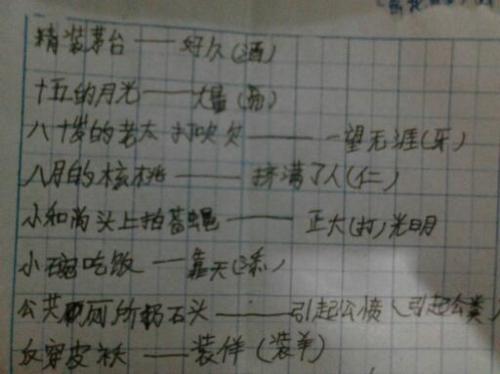 精装茅台——好久(酒)
十五的月光——大量(亮)
八十岁的老太打吹欠——一望无涯(牙)
八月的核桃——挤满了人(仁)
小和尚头上拍苍蝇——正大(打)光明
小碗吃饭——靠天(添)
公共厕所扔石头——引起公愤(引起公粪)
反穿皮袄——装佯(装羊)